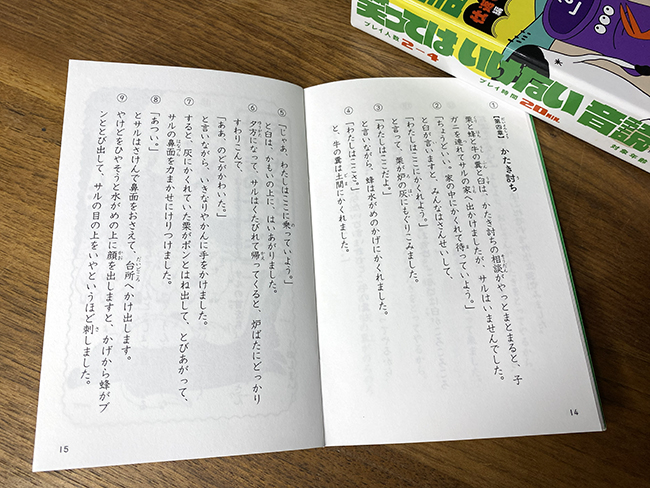 笑ってはいけない 音読
プレイ人数 2-4
プレイ時間 20
対象年齢
①
【第四章】 かたき討ち
栗と蜂と牛の糞と臼は、かたき討ちの相談がやっとまとまると、子
ガニを連れてサルの家へ出かけましたが、サルはいませんでした。
②
「ちょうどいい、家の中にかくれて待っていよう。」
と臼が言いますと、みんなはさんせいして、
「わたしはここにかくれよう。」
と言って、栗が炉の灰にもぐりこみました。
③
「わたしはここだよ。」
と言いながら、蜂は水がめのかげにかくれました。
④
「わたしはここさ。」
と、牛の糞は土間にかくれました。
14
⑤
「じゃあ、わたしはここに乗っていよう。」
と臼は、かもいの上に、はいあがりました。
⑥
夕方になって、サルはくたびれて帰ってくると、炉ばたにどっかり
すわりこんで、
「ああ、のどがかわいた。」
と言いながら、いきなりやかんに手をかけました。
⑦
すると、灰にかくれていた栗がポンとはね出して、とびあがって、
サルの鼻面を力まかせにけりつけました。
⑧
「あつい。」
とサルはさけんで鼻面をおさえて、台所へかけ出します。
⑨
やけどをひやそうと水がめの上に顔を出しますと、かげから蜂がブ
ンととび出して、サルの目の上をいやというほど刺しました。
15